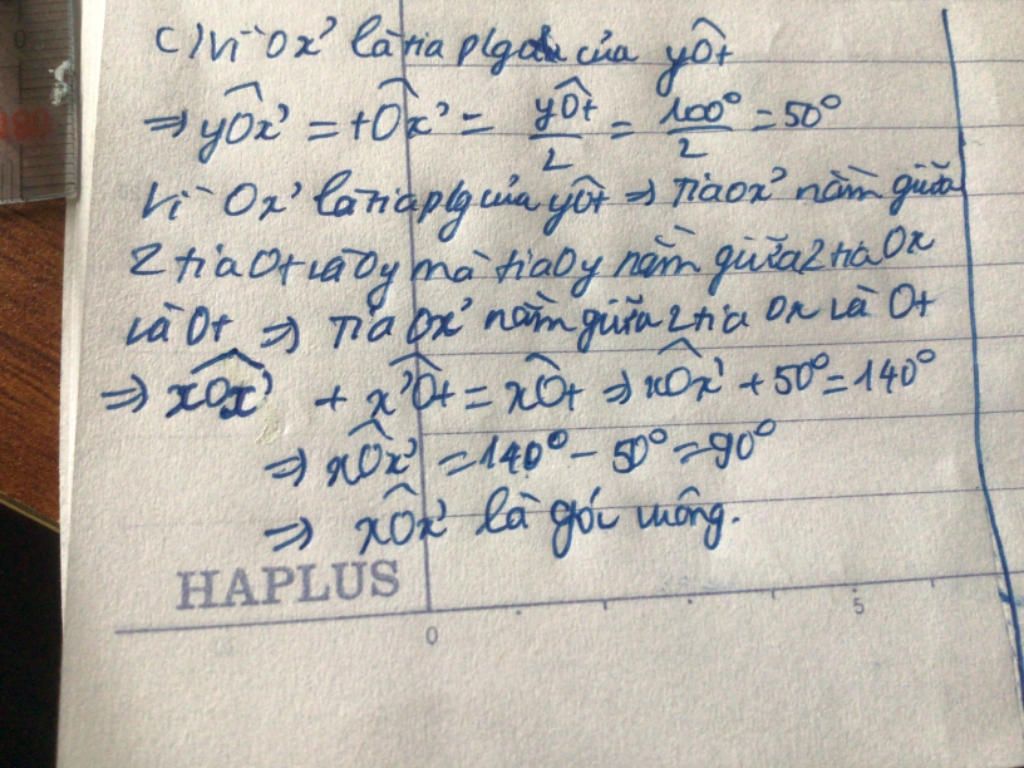 c) Vì Ox' là tia plg của yÔt
⇒ yÔx' = tÔx' = yÔt/2 = 100°/2 = 50°
Vì Ox' là tia plg của yÔt ⇒ Tia Ox' nằm giữa
2 tia Ot và Oy mà tia Oy nằm giữa 2 tia Ox
và Ot ⇒ Tia Ox' nằm giữa 2 tia Ox và Ot
⇒ xÔx' + x'Ôt = xÔt ⇒ xÔx' + 50° = 140°
⇒ xÔx' = 140° - 50° = 90°
⇒ xÔx' là góc vuông.
HAPLUS
0 5